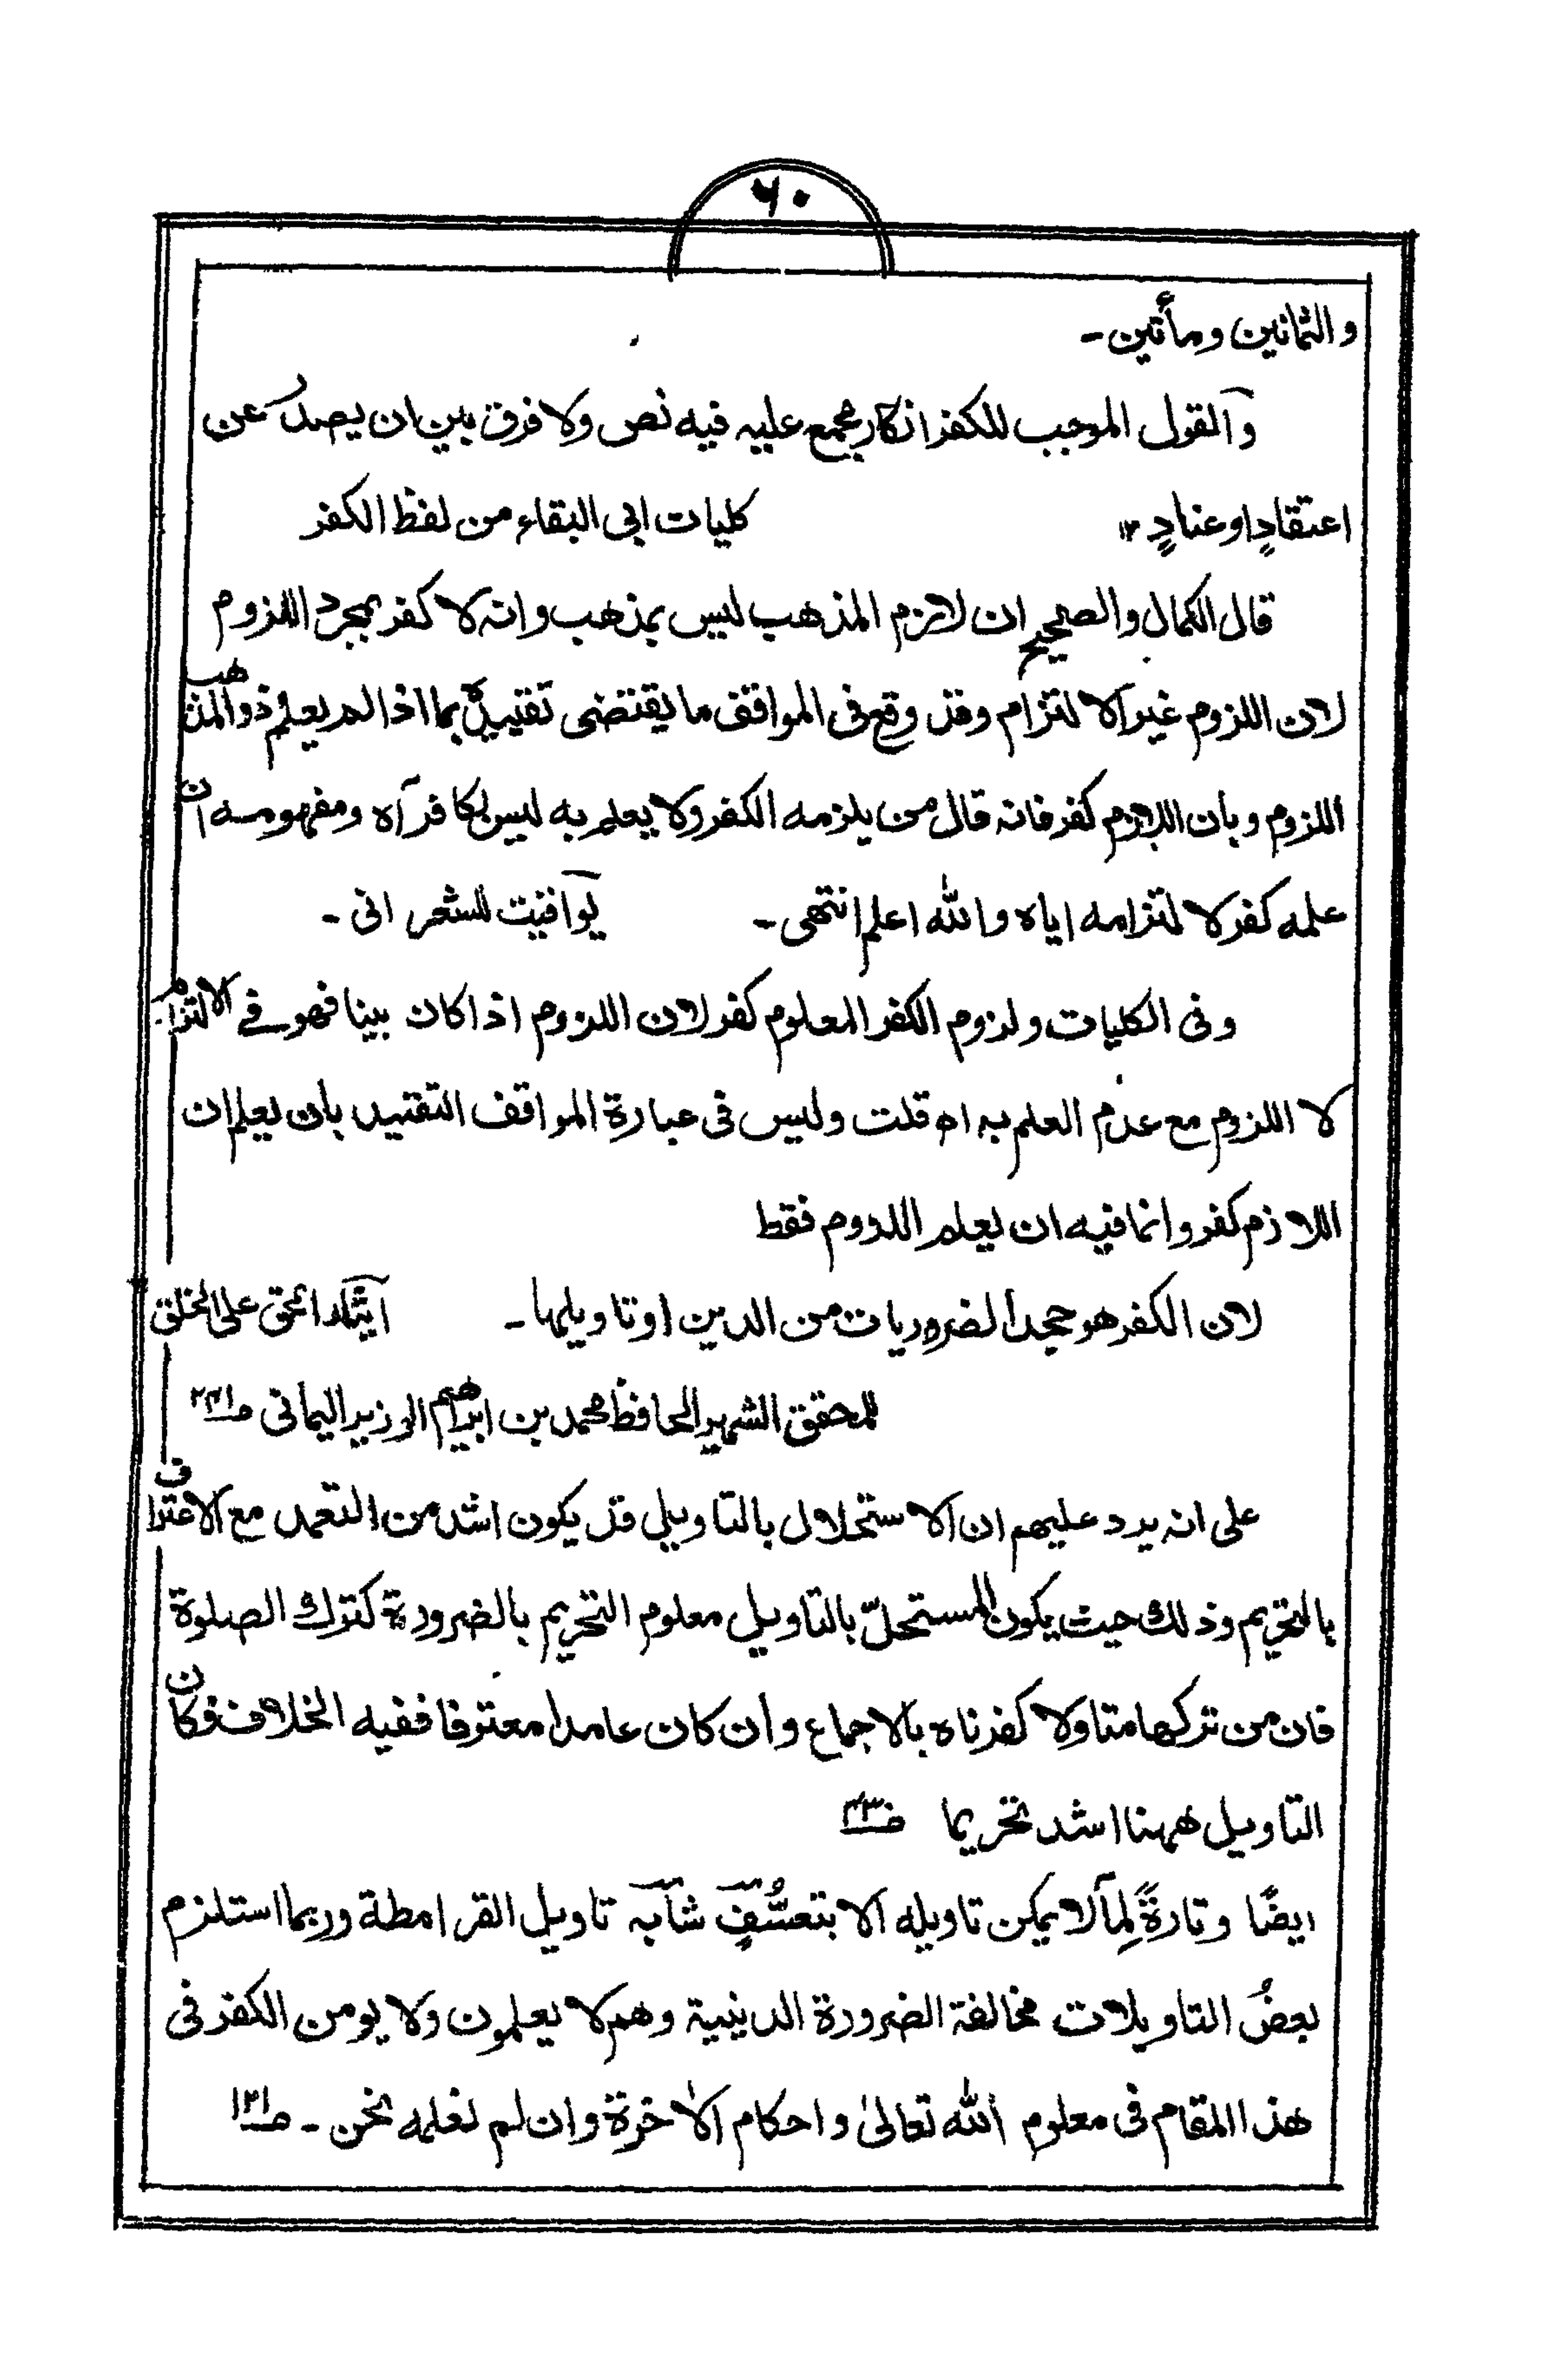 ٦٠
والثمانين ومأتين-
والقول الموجب للكفر انكار مجمع عليه فيه نص ولا فرق بين ان يصدر عن
اعتقادٍ او عنادٍ ١٢ كليات ابى البقاء من لفظ الكفر
قال الكمال والصحيح ان لازم المذهب ليس بمذهب وانه لا كفر بمجرد اللزوم
لان اللزوم غير الالتزام وقد وقع فى المواقف ما يقتضى تقييده بما اذا لم يعلم ذوالمذهب
اللزوم وبان اللازم كفر فانه قال من يلزمه الكفر ولا يعلم به ليس بكافر آه ومفهومه ان
علمه كفر لالتزامه اياه والله اعلم انتهى- يواقيت للشعرانى-
وفى الكليات ولزوم الكفر المعلوم كفر لان اللزوم اذا كان بينا فهو فے الالتزام-
لا اللزوم مع عدم العلم به اه قلت وليس فى عبارة المواقف التقييد بان يعلم ان
اللازم كفر وانما فيه ان يعلم اللزوم فقط
لان الكفر هو جحد الضروريات من الدين او تاويلها- ايثار الحق على الخلق
للمحقق الشهير الحافظ محمد بن ابراهيم الوزير اليمانى صـ٢٤١
على انه يرد عليهم ان الاستحلال بالتاويل قد يكون اشد من التعمد مع الاعتراف
بالتحريم وذلك حيث يكون المستحلّ بالتاويل معلوم التحريم بالضرورة كترك الصلوة
فان من تركها متاولا كفرناه بالاجماع وان كان عامدا معترفا ففيه الخلاف فكان
التاويل ههنا اشد تحريما
ايضًا وتارةً لِما لا يمكن تاويله الا بتعسُّفٍ شابه تاويل القرامطة وربما استلزم
بعضُ التاويلات مخالفة الضرورة الدينية وهم لا يعلمون ولا يومن الكفر فى
هذا المقام فى معلوم الله تعالىٰ واحكام الاٰخرة وان لم نعلمه نحن- صـ١٣١